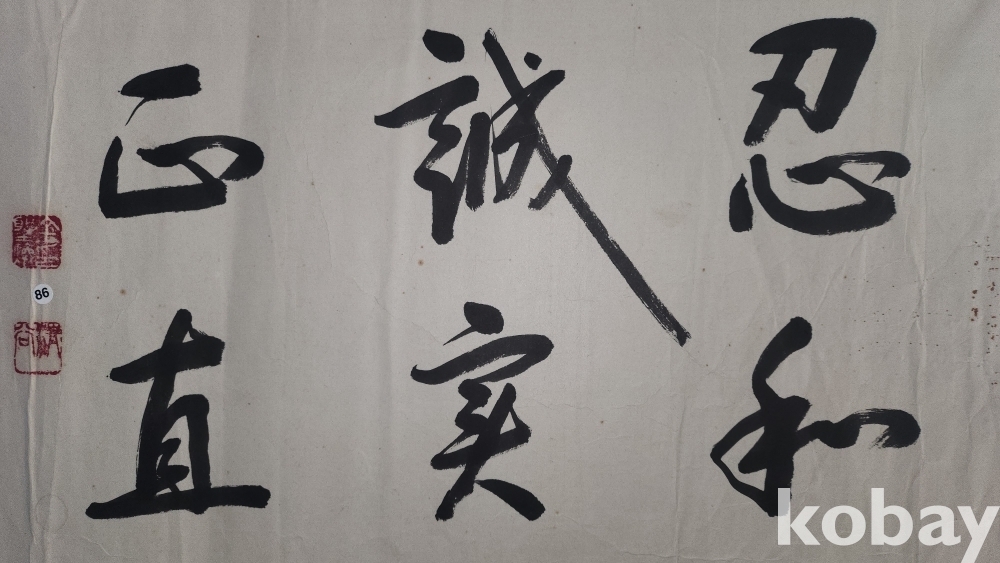 忍和
誠实
正直
86
kobay